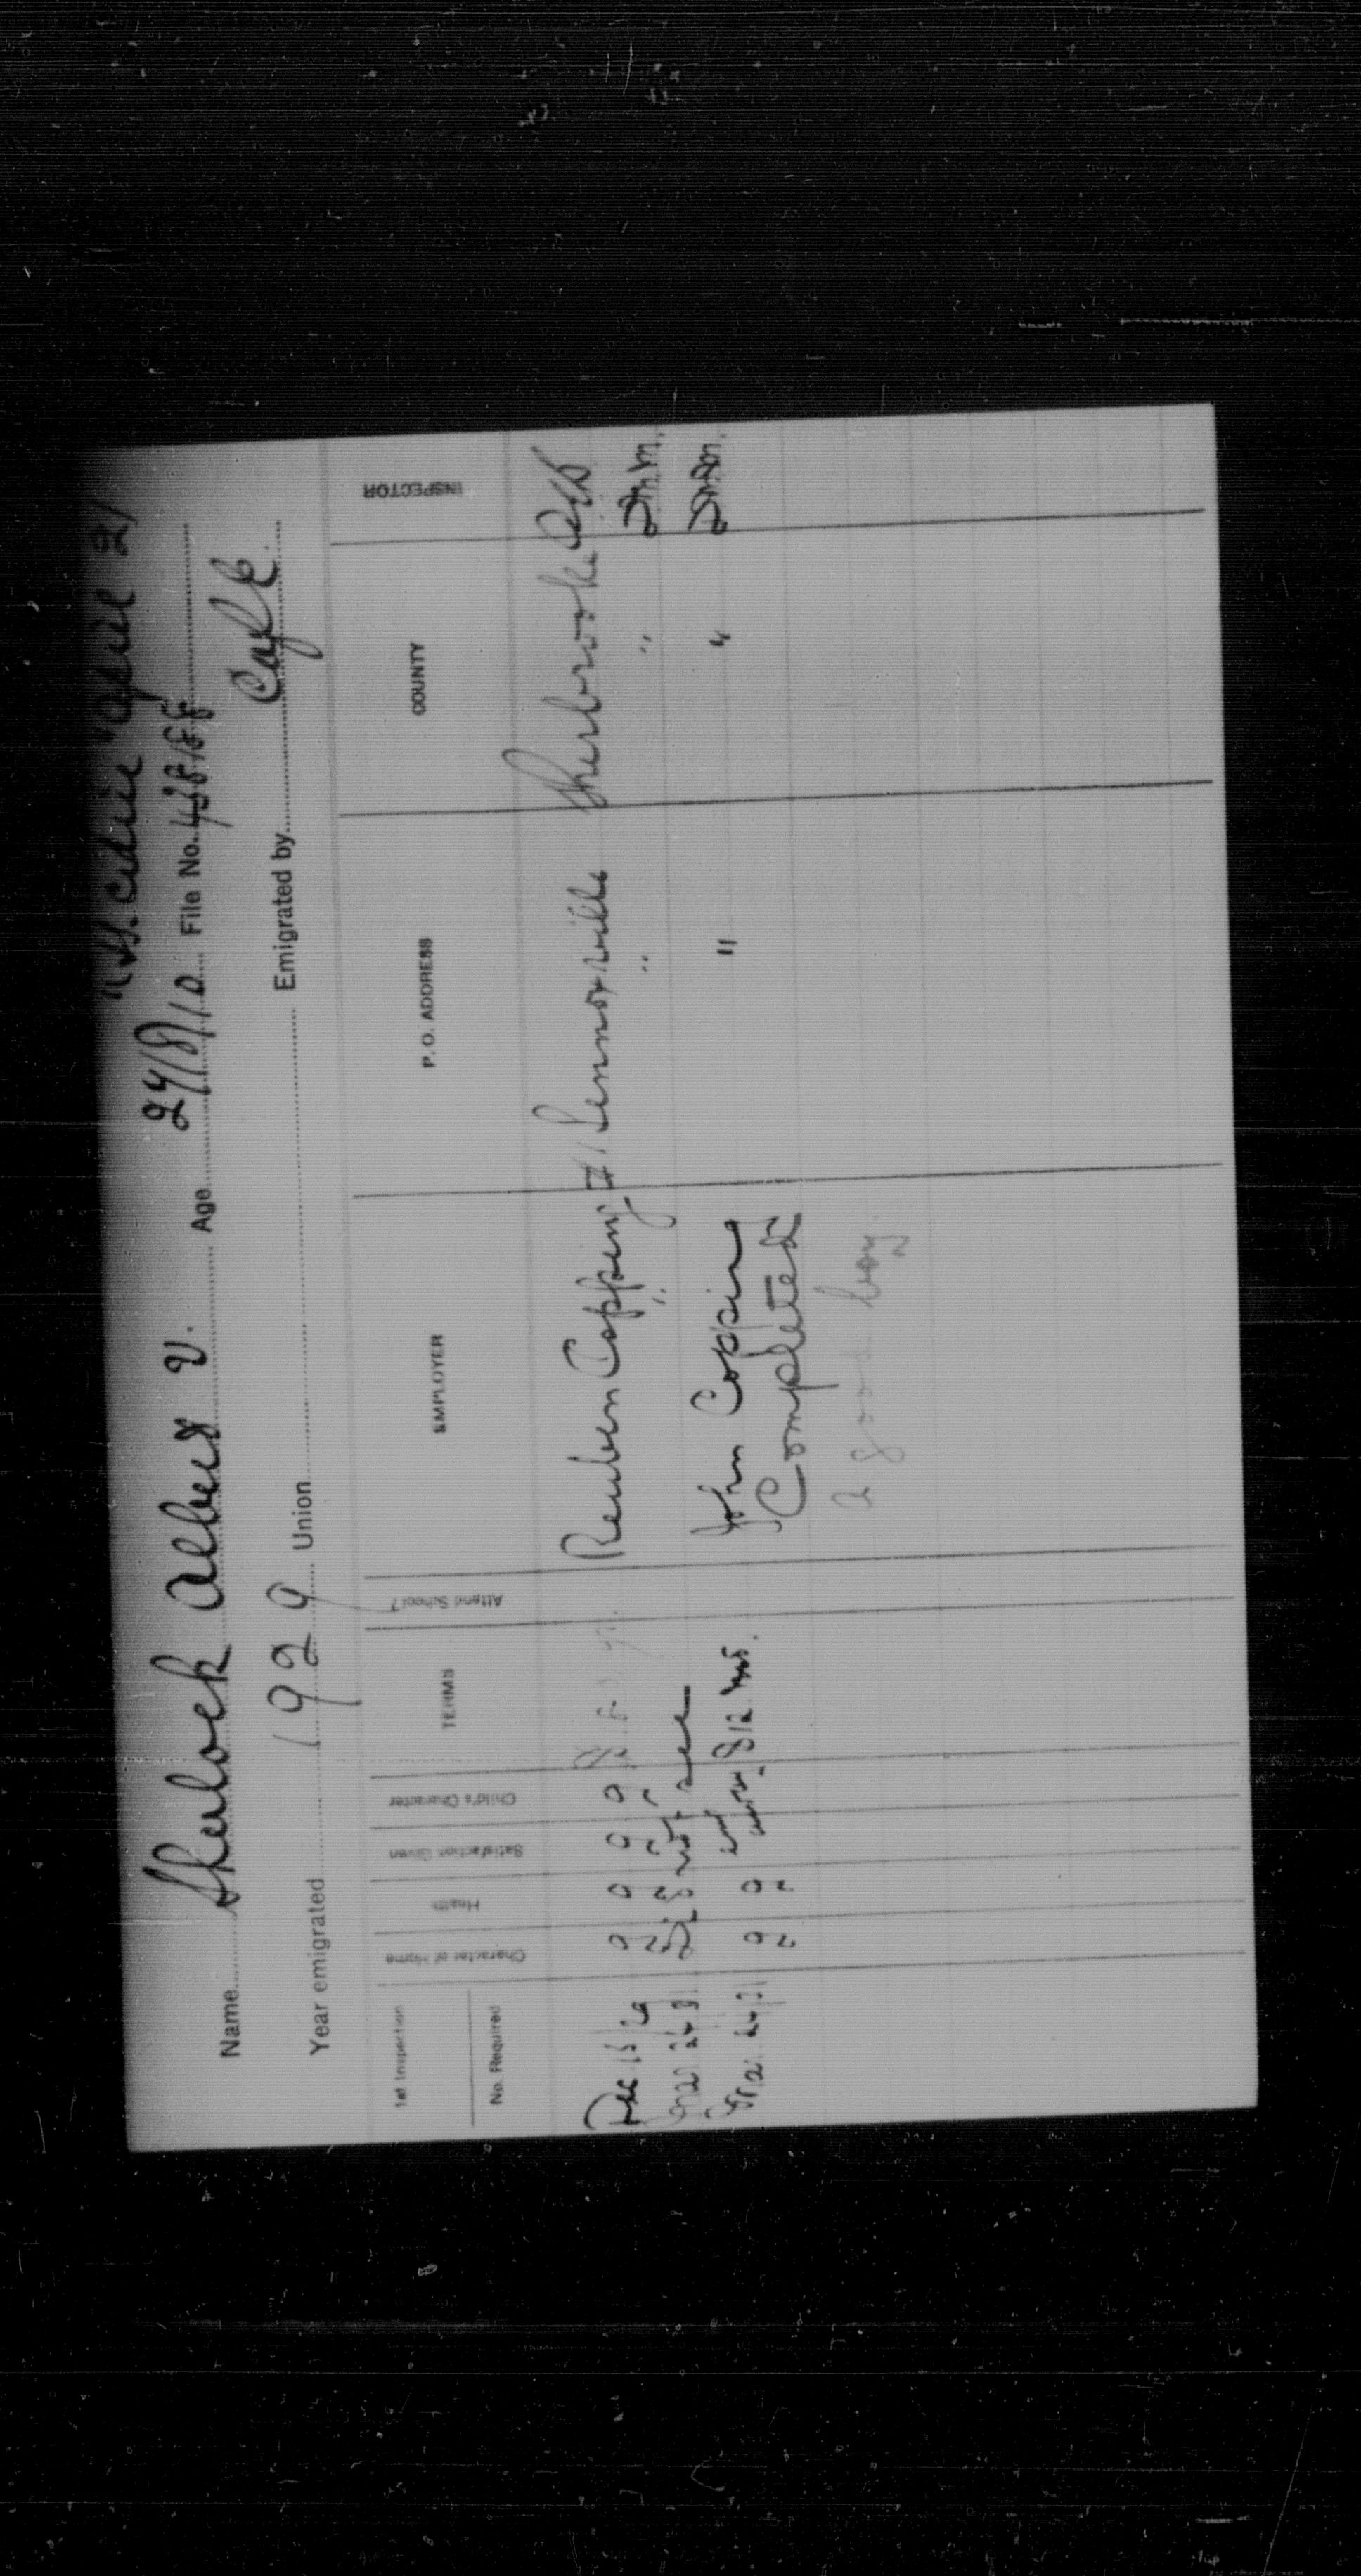 April 2/
Name Sherlock Albert V. Age 24/8/10 File No. 438188
Year emigrated 1929 Union Emigrated by
1st Inspection
No. Required
Character of Home
Health
Satisfaction Given
Child's Character
TERMS
Attend School?
EMPLOYER
P. O. ADDRESS
COUNTY
INSPECTOR
Dec 13/29 g g g g Reuben Copping #1 Lennoxville Sherbrooke
Mar 26/31 Did not see " " "
Mar 26/31 g g $12 mo. John Copping " "
Completed
a good boy.